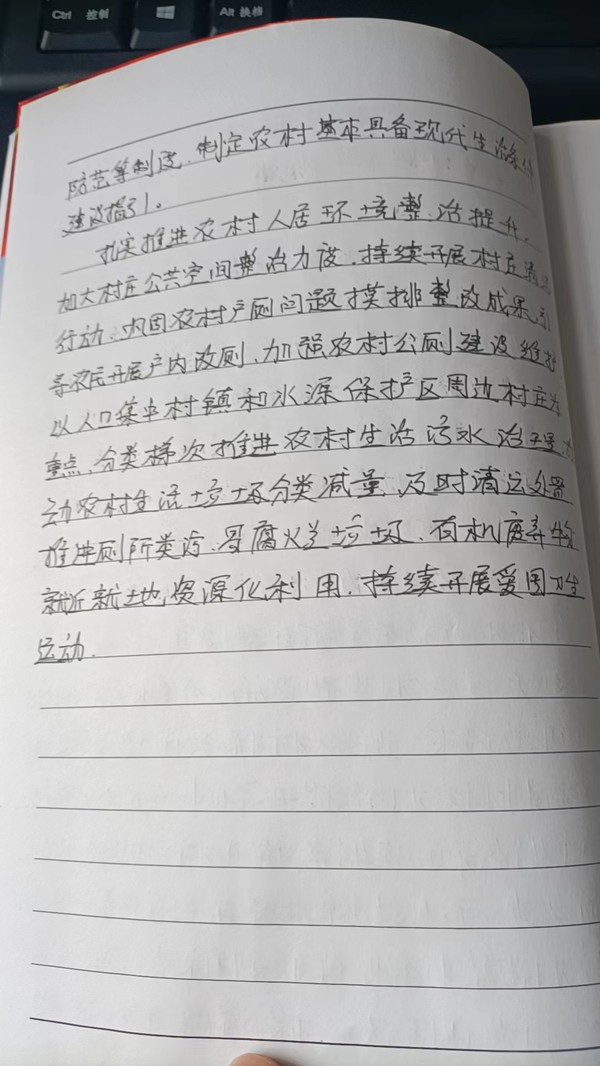 Ctrl 控制
Alt 换档
防范等制度.制定农村基本具备现代生活条件
建设指引。
扎实推进农村人居环境整治提升.
加大村庄公共空间整治力度.持续开展村庄清洁
行动.巩固农村户厕问题摸排整改成果.引
导农民开展户内改厕、加强农村公厕建设维护
以人口集中村镇和水源保护区周边村庄为
重点、分类梯次推进农村生活污水治理.
动农村生活垃圾分类减量.及时清运处置
推进厕所粪污.易腐烂垃圾、有机废弃物
就近就地资源化利用.持续开展爱国卫生
运动.